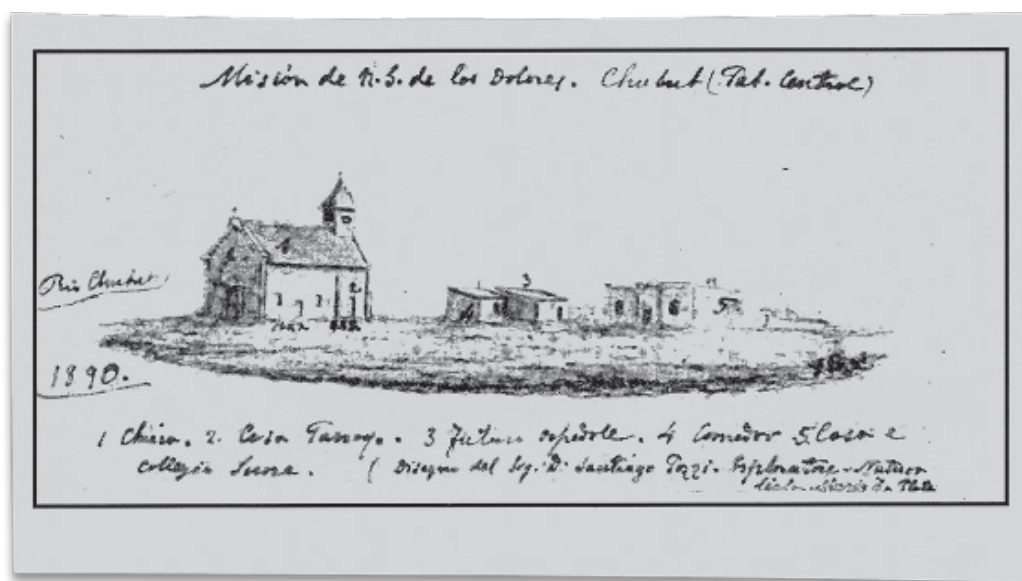 Misión de N. S. de los Dolores. Chubut (Pat. Central)
Rio Chubut
1890.
1 Chiesa. 2. Casa Parroq. 3 Futuro ospedale. 4 Comedor 5. Casa e
collegio Suore. ( Disegno del Sig. D. Santiago Pozzi. Esploratore - Natura
La Plata